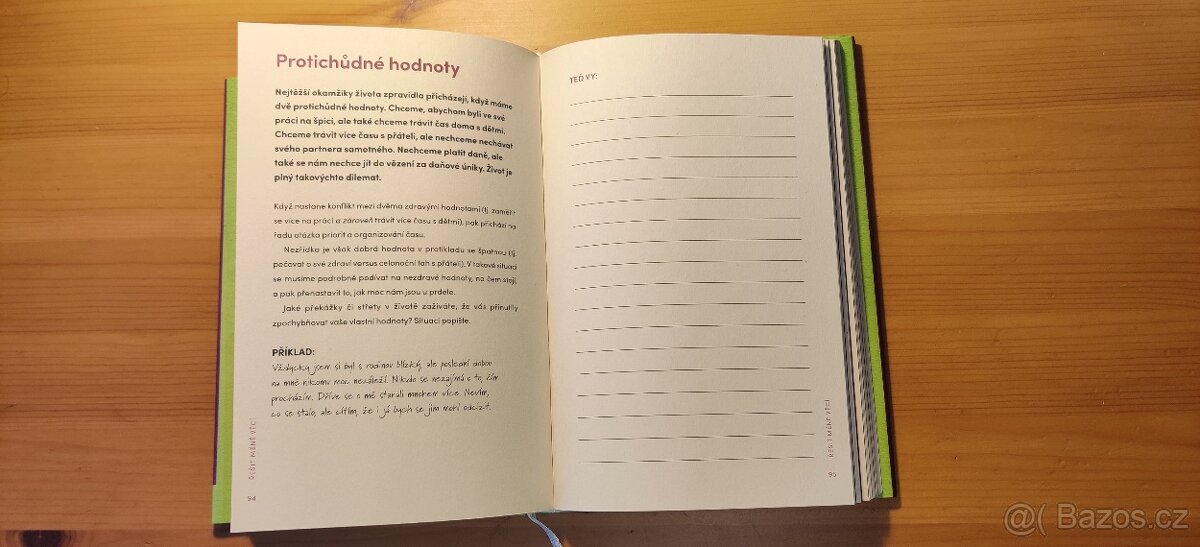 Protichůdné hodnoty
Nejtěžší okamžiky života zpravidla přicházejí, když máme
dvě protichůdné hodnoty. Chceme, abychom byli ve své
práci na špici, ale také chceme trávit čas doma s dětmi.
Chceme trávit více času s přáteli, ale nechceme nechávat
svého partnera samotného. Nechceme platit daně, ale
také se nám nechce jít do vězení za daňové úniky. Život je
plný takovýchto dilemat.
Když nastane konflikt mezi dvěma zdravými hodnotami (tj. zaměřit
se více na práci a zároveň trávit více času s dětmi), pak přichází na
řadu otázka priorit a organizování času.
Nezřídka je však dobrá hodnota v protikladu se špatnou (tj.
pečovat o své zdraví versus celonoční tah s přáteli). V takové situaci
se musíme podrobně podívat na nezdravé hodnoty, na čem stojí,
a pak přenastavit to, jak moc nám jsou u prdele.
Jaké překážky či střety v životě zažíváte, že vás přinutily
zpochybňovat vaše vlastní hodnoty? Situaci popište.
PŘÍKLAD:
Vždycky jsem si byl s rodinou blízký, ale poslední dobou
na mně nikomu moc nezáleží. Nikdo se nezajímá o to, čím
procházím. Dříve se o mě starali mnohem více. Nevím,
co se stalo, ale cítím, že i já bych se jim mohl odcizit.
ŘEŠIT MÉNĚ VĚCÍ
94
TEĎ VY:
ŘEŠIT MÉNĚ VĚCÍ
95
@( Bazos.cz